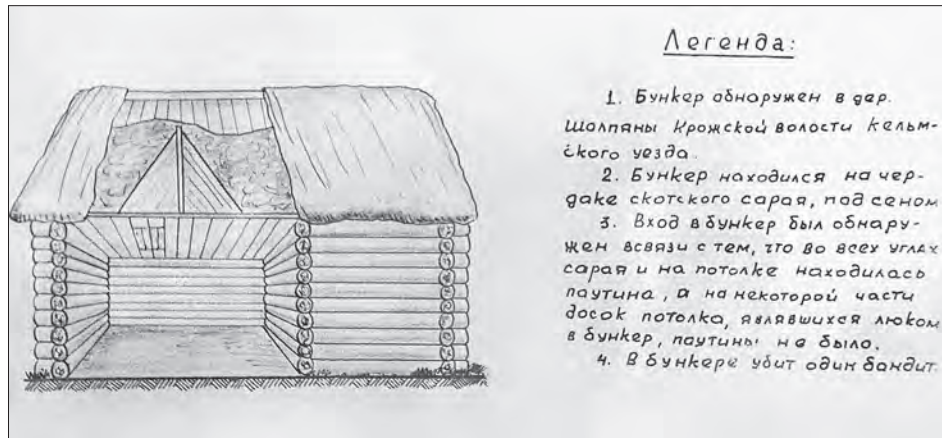 Легенда:
1. Бункер обнаружен в дер.
Шалпяны Крожской волости Кельм-
ского уезда.
2. Бункер находился на чер-
даке скотского сарая, под сеном
3. Вход в бункер был обнару-
жен всвязи с тем, что во всех углах
сарая и на потолке находилась
паутина, а на некоторой части
досок потолка, являвшихся люком
в бункер, паутины не было.
4. В бункере убит один бандит.